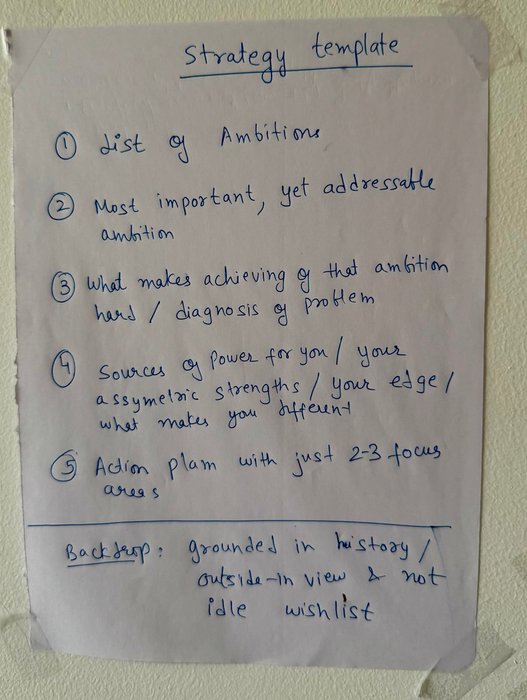 Strategy template
① List of Ambitions
② Most important, yet addressable
ambition
③ What makes achieving of that ambition
hard / diagnosis of problem
④ Sources of Power for you / your
assymetric strengths / your edge /
what makes you different
⑤ Action plan with just 2-3 focus
areas
Backdrop: grounded in history /
outside-in view & not
idle wishlist